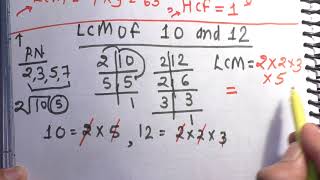 Hcf = 1
LCM of 10 and 12
PN
2,3,5,7
2 10 5
2 10
5 5
1
2 12
2 6
3 3
1
LCM = 2×2×3
×5
=
10 = 2×5, 12 = 2×2×3